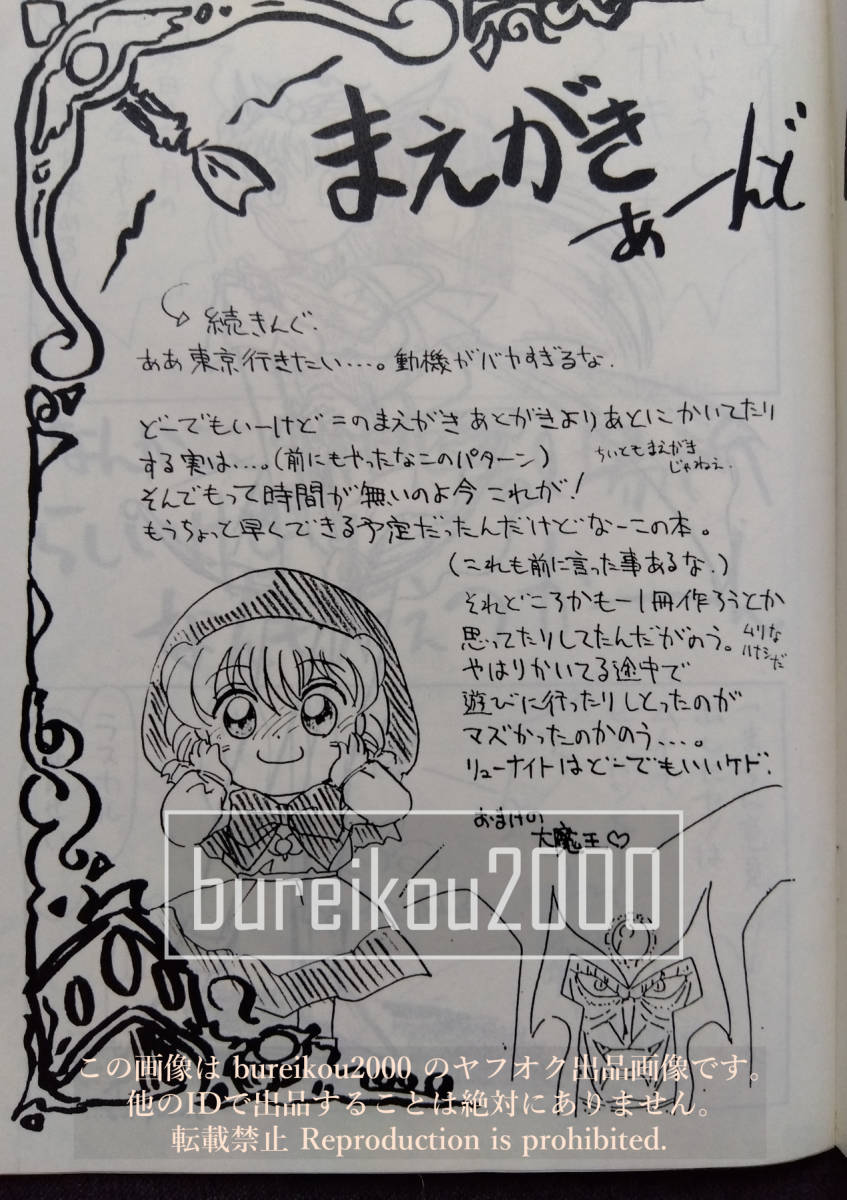 まえがき
あーんど
続きんぐ.
ああ東京行きたい…。動機がバカすぎるな.
どーでもいーけど このまえがき あとがきよりあとに かいてたり
する実は…。(前にもやったなこのパターン)
ちいともまえがき
じゃねえ.
そんでもって時間が無いのよ今 これが!
もうちょっと早くできる予定だったんだけどなーこの本。
(これも前に言った事あるな.)
それどころかもー1冊作ろうとか
思ってたりしてたんだがのう。
ムリな
ハナシだ
やはりかいてる途中で
遊びに行ったりしとったのが
マズかったのかのう…。
リューナイトはどーでもいいケド.
おまけの
大魔王♡
bureikou2000
この画像は bureikou2000 のヤフオク出品画像です。
他のIDで出品することは絶対にありません。
転載禁止 Reproduction is prohibited.